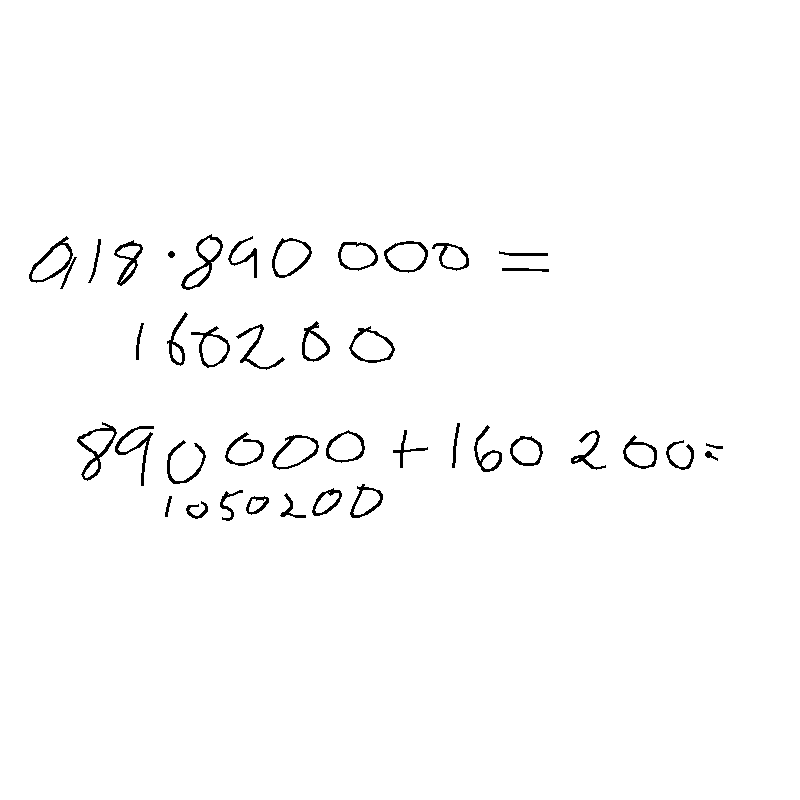 918·890 000 =
160200
890 000 + 160 200=
1050200